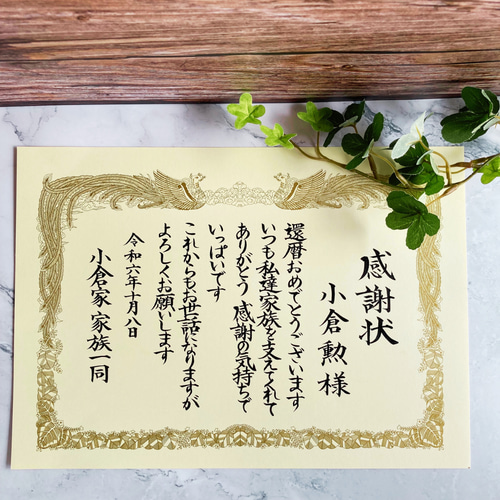 感謝状
小倉勲様
還暦おめでとうございます
いつも私達家族を支えてくれて
ありがとう 感謝の気持ちで
いっぱいです
これからもお世話になりますが
よろしくお願いします
令和六年十月八日
小倉家 家族一同